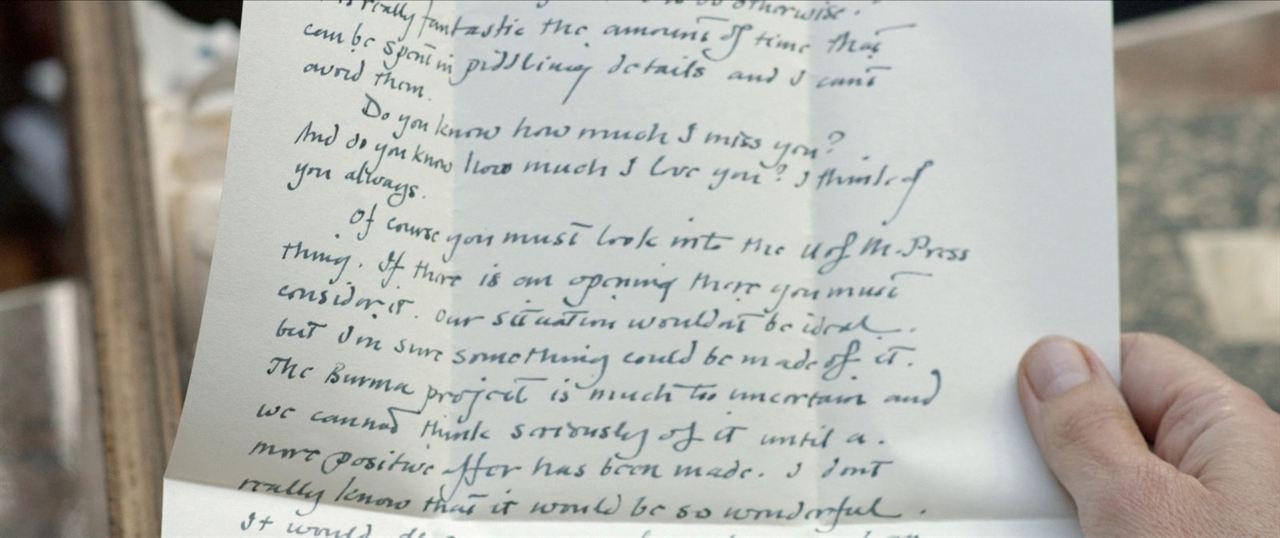 otherwise.
really fantastic the amount of time that
can be spent in piddling details and I can't
avoid them.
Do you know how much I miss you?
And do you know how much I love you? I think of
you always.
Of course you must look into the U of M. Press
thing. If there is an opening there you must
consider it. Our situation wouldn't be ideal.
but I'm sure something could be made of it.
The Burma project is much too uncertain and
we cannot think seriously of it until a.
more positive offer has been made. I don't
really know that it would be so wonderful.
It would